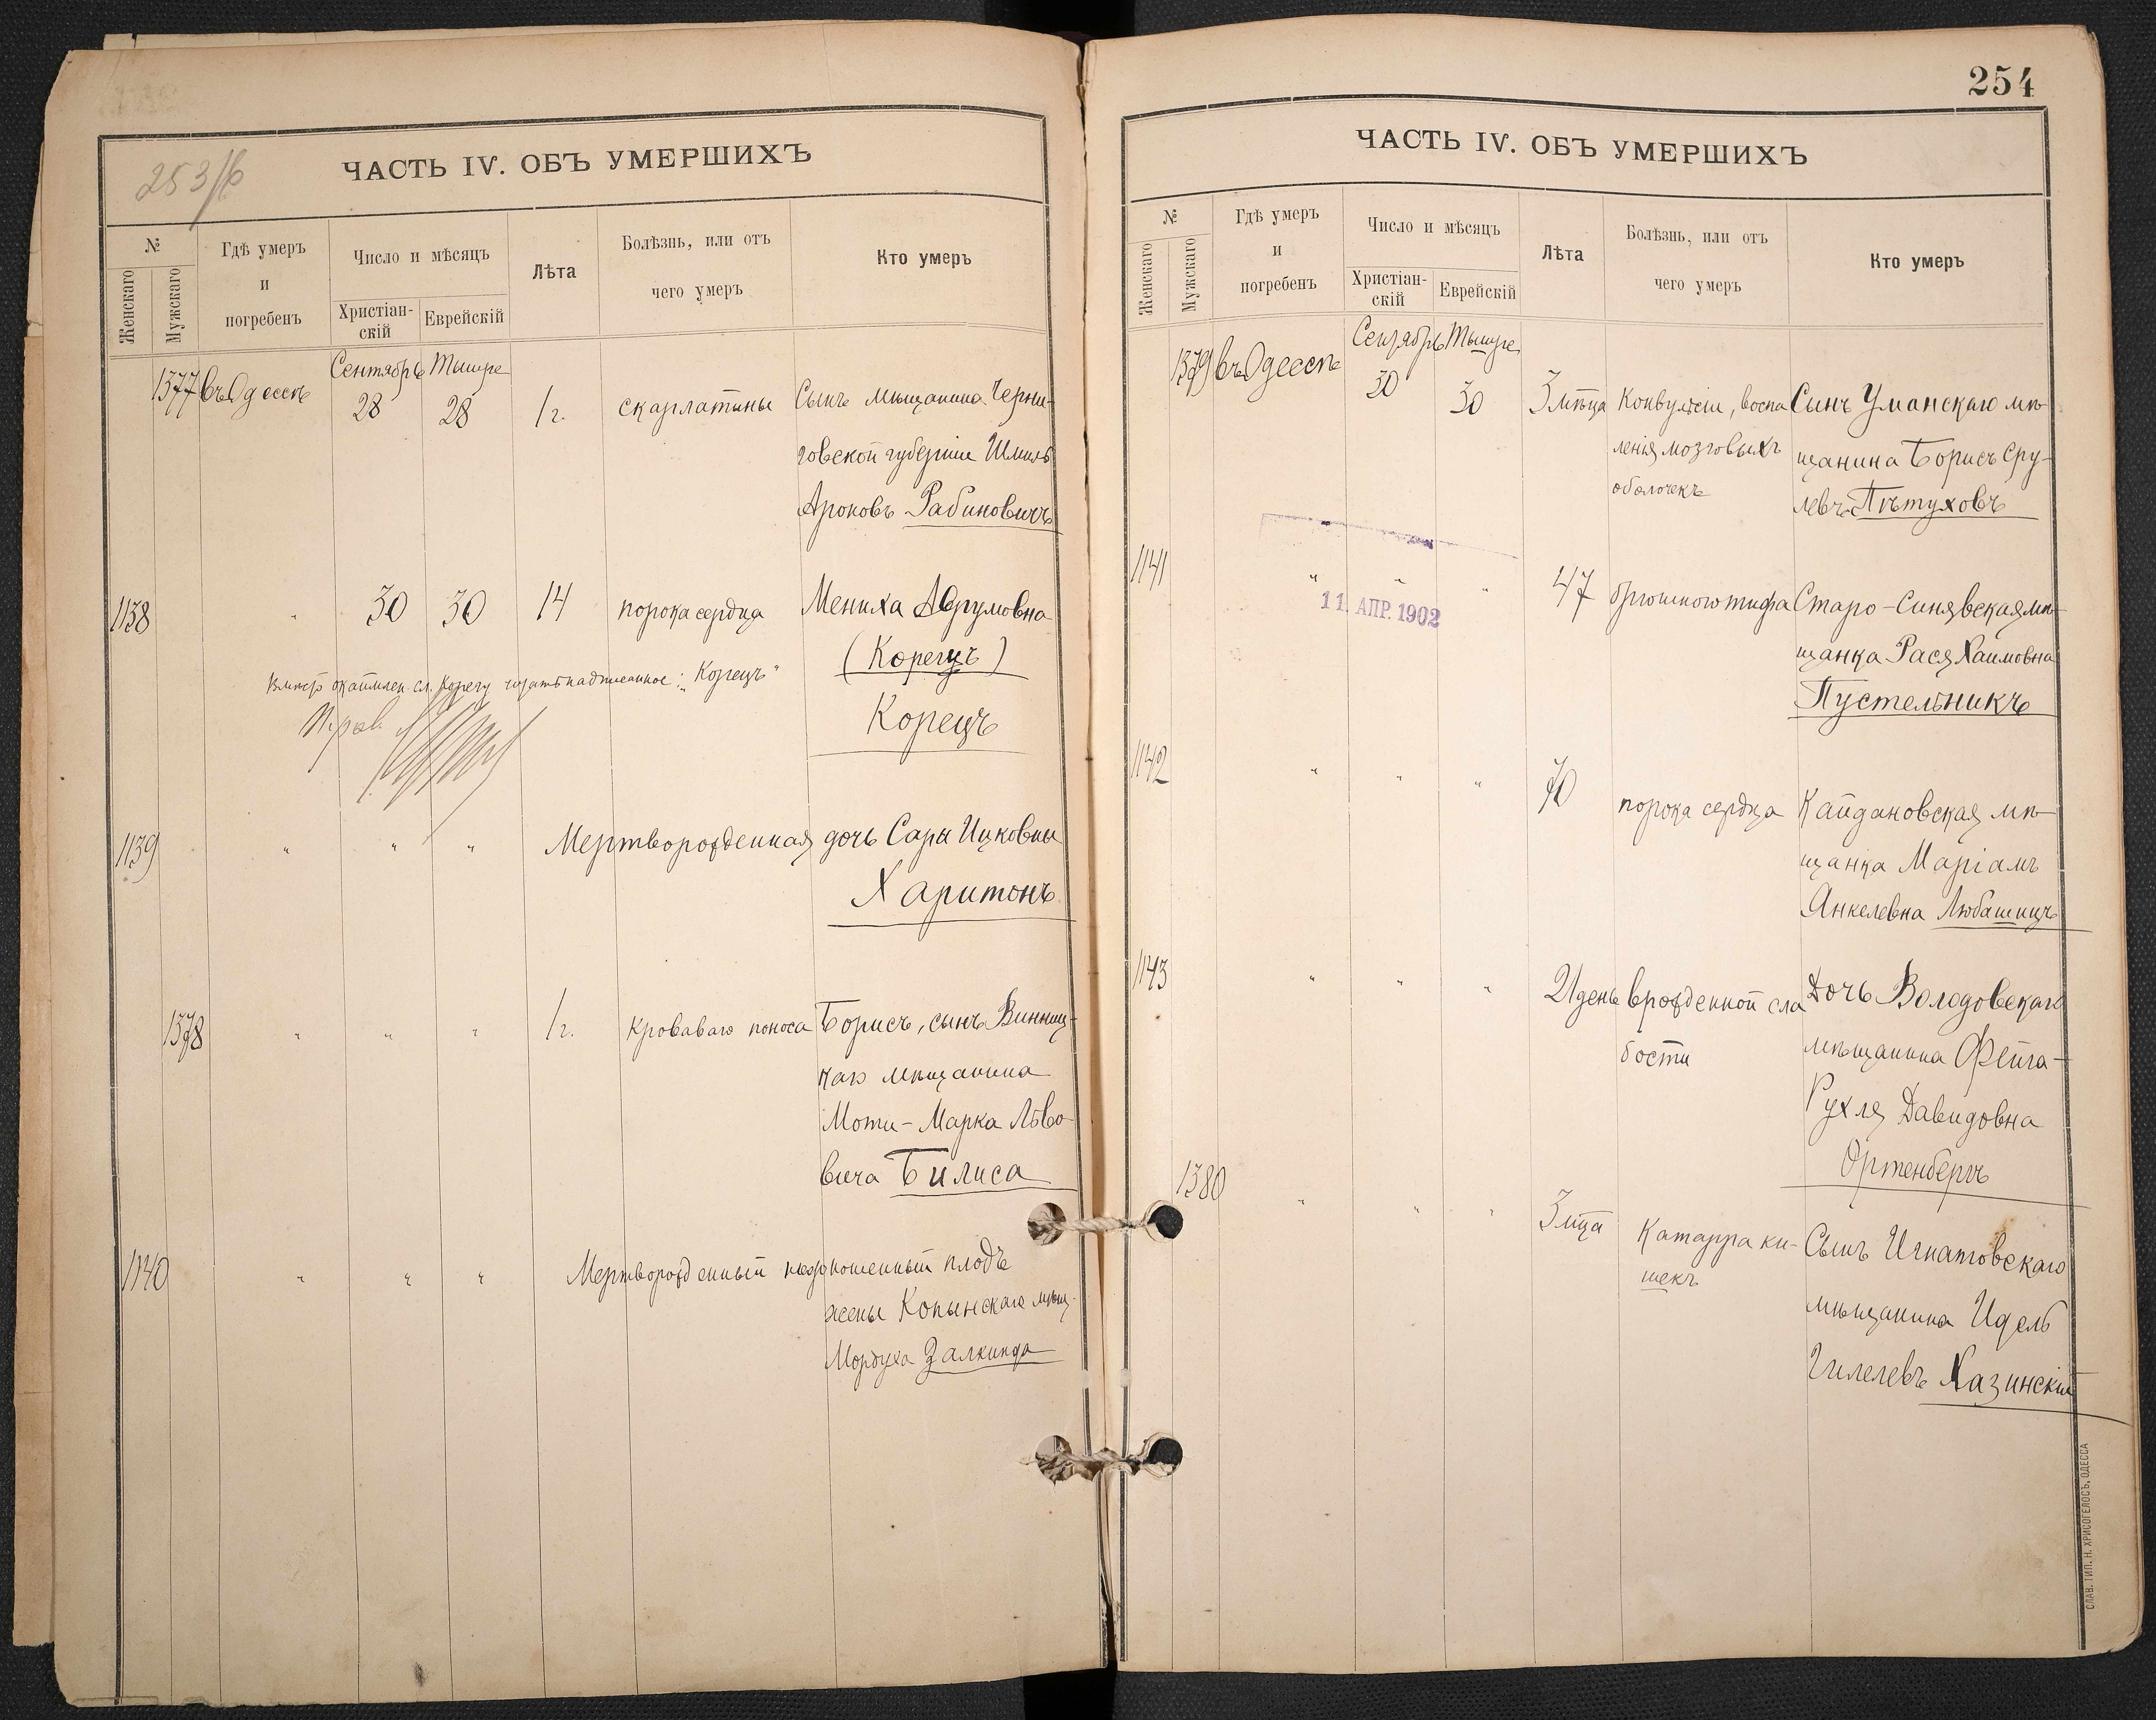 253/б
ЧАСТЬ IV. ОБЪ УМЕРШИХЪ
№
Женскаго
Мужскаго
Гдѣ умеръ
и
погребенъ
Число и мѣсяцъ
Христіан-
скій
Еврейскій
Лѣта
Болѣзнь, или отъ
чего умеръ
Кто умеръ
Сентябрь Тышре
1377 въ Одессѣ 28 28 1 г. скарлатины Сынъ мѣщанина Черни-
говской губерніи Шмиль
Ароновъ Рабиновичъ
1138 " 30 30 14 порока сердца Мениха Аврумовна
(Корегуъ)
читать надписанное: "Корецъ"
Корецъ
1139 " " " Мертворожденная дочь Сары Ицковны
Харитонъ
1378 " " " 1 г. кроваваго поноса Борисъ, сынъ Винниц-
каго мѣщанина
Моти-Марка Льво-
вича Билиса
1140 " " " Мертворожденный недоношенный плодъ
жены Копынскаго мѣщ.
Мордуха Залкинда
254
ЧАСТЬ IV. ОБЪ УМЕРШИХЪ
№
Женскаго
Мужскаго
Гдѣ умеръ
и
погребенъ
Число и мѣсяцъ
Христіан-
скій
Еврейскій
Лѣта
Болѣзнь, или отъ
чего умеръ
Кто умеръ
Сентябрь Тышре
1379 въ Одессѣ 30 30 3 мѣсца Конвулсіи, воспа Сынъ Уманскаго мѣ-
ленія мозговыхъ щанина Борисъ Сру-
оболочекъ левъ Пѣтуховъ
1141 " " " 47 брюшного тифа Старо-Синявская мѣ-
11. АПР. 1902
щанка Рася Хаимовна
Пустельникъ
1142 " " " 70 порока сердца Кайдановская мѣ-
щанка Маріамъ
Янкелевна Любашицъ
1143 " " " 21 день врожденной сла Дочь Володовскаго
бости мѣщанина Фейга-
Рухля Давидовна
Ортенбергъ
1380 " " " 3 мца Катарра ки- Сынъ Игнатовскаго
шекъ
мѣщанина Идель
Гилелевъ Хазинскій
СЛАВ. ТИП. Н. ХРИСОГЕЛОСЪ, ОДЕССА